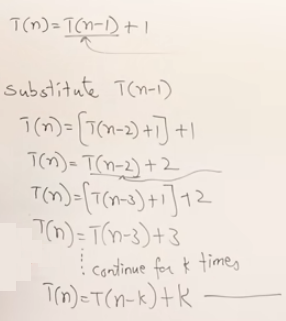 T(n) = T(n-1) + 1
substitute T(n-1)
T(n) = [T(n-2) + 1] + 1
T(n) = T(n-2) + 2
T(n) = [T(n-3) + 1] + 2
T(n) = T(n-3) + 3
⋮ continue for k times
T(n) = T(n-k) + k